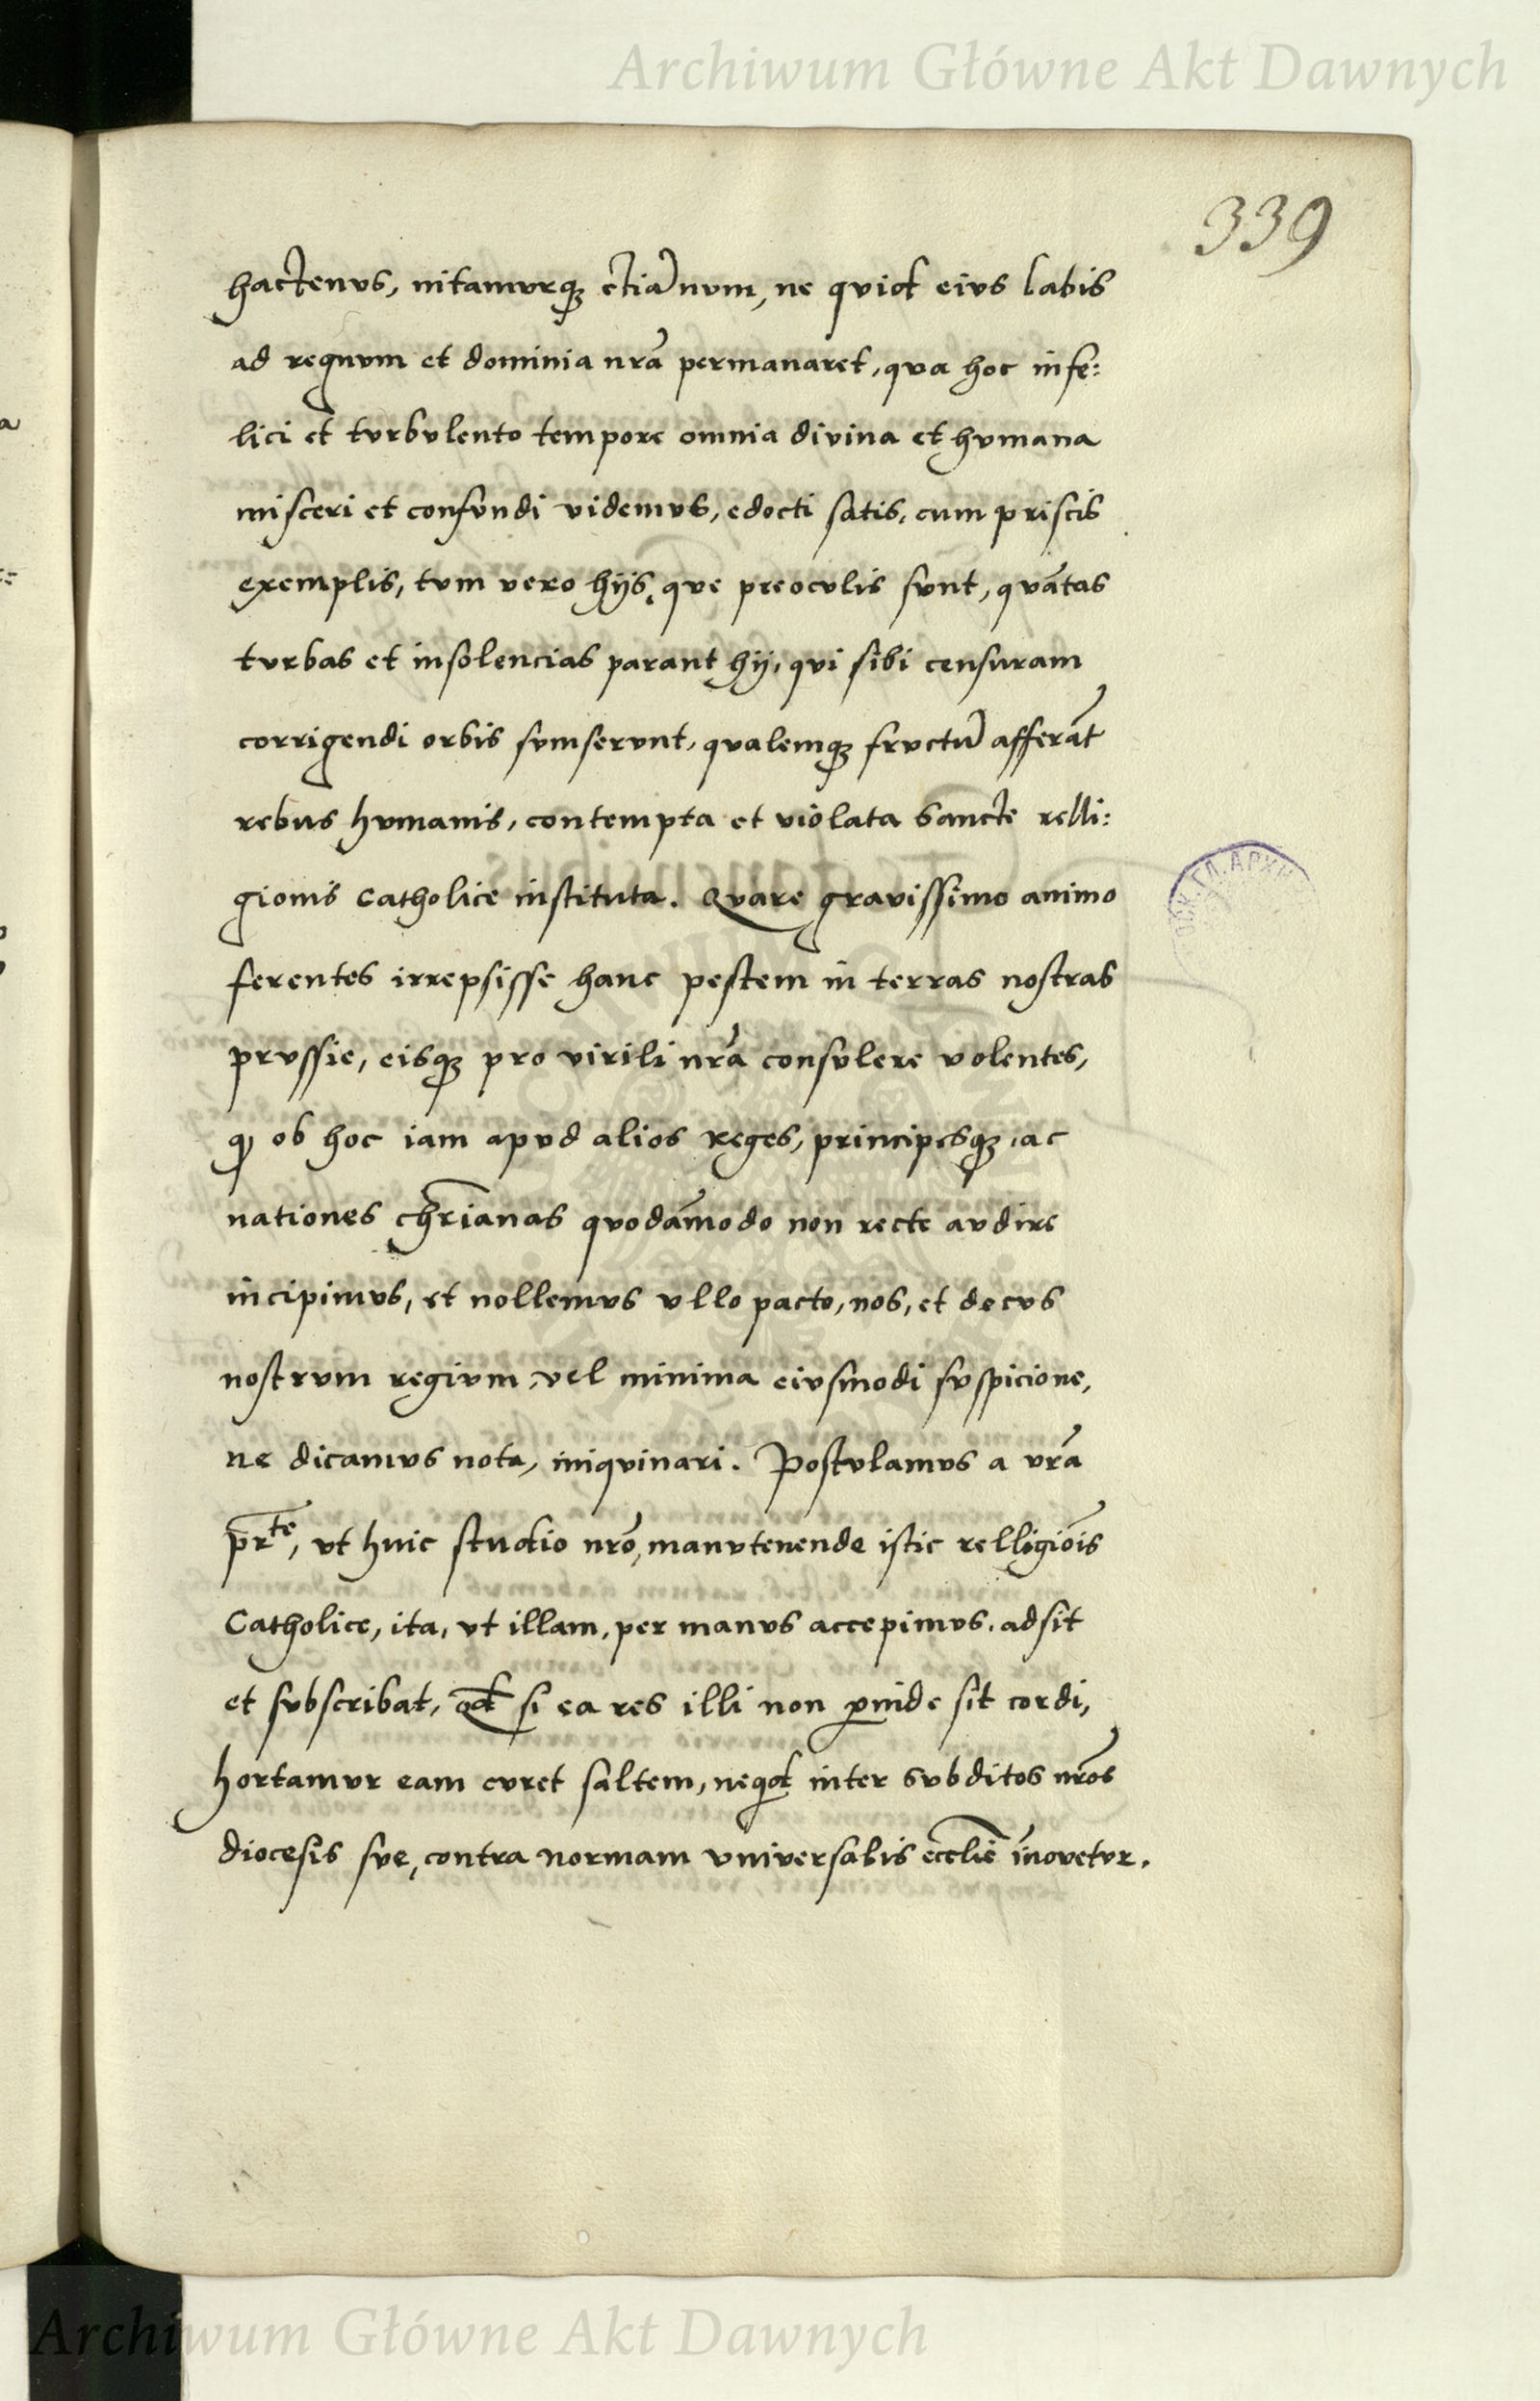 Archiwum Główne Akt Dawnych
339
hactenvs, nitamvrqꝫ etiā nvm, ne qvid eivs labis
ad regnvm et dominia nr̃a permanaret, qva hoc infe:
lici et tvrbvlento tempore omnia divina et hvmana
misceri et confvndi videmvs, edocti satis, cum priscis
exemplis, tvm vero hijs, qve preocvlis svnt, qvãtas
tvrbas et insolencias parant hij, qvi sibi censuram
corrigendi orbis svmservnt, qvalemqꝫ frvctũ afferãt
rebus hvmanis, contempta et violata Sancte relli:
gionis Catholice instituta. Qvare gravissimo animo
ferentes irrepsisse hanc pestem in terras nostras
prvssie, eisqꝫ pro virili nr̃a consvlere volentes,
ꝙ ob hoc iam apvd alios reges, principesqꝫ, ac
nationes chr̃ianas qvodãmodo non recte avdire
incipimvs, et nollemvs vllo pacto, nos, et decvs
nostrvm regivm, vel minima eivsmodi svspicione,
ne dicamvs nota, iniqvinari. Postvlamvs a vr̃a
pr̃te, vt hvic studio nr̃o, manvtenende istic relligiõis
Catholice, ita, vt illam, per manvs accepimvs, adsit
et svbscribat, qd si ea res illi non ꝑinde sit cordi,
hortamvr eam cvret saltem, neqd inter svbditos nr̃os
diocesis sve, contra normam vniversalis eccl̃ie ĩnovetvr.
Archiwum Główne Akt Dawnych